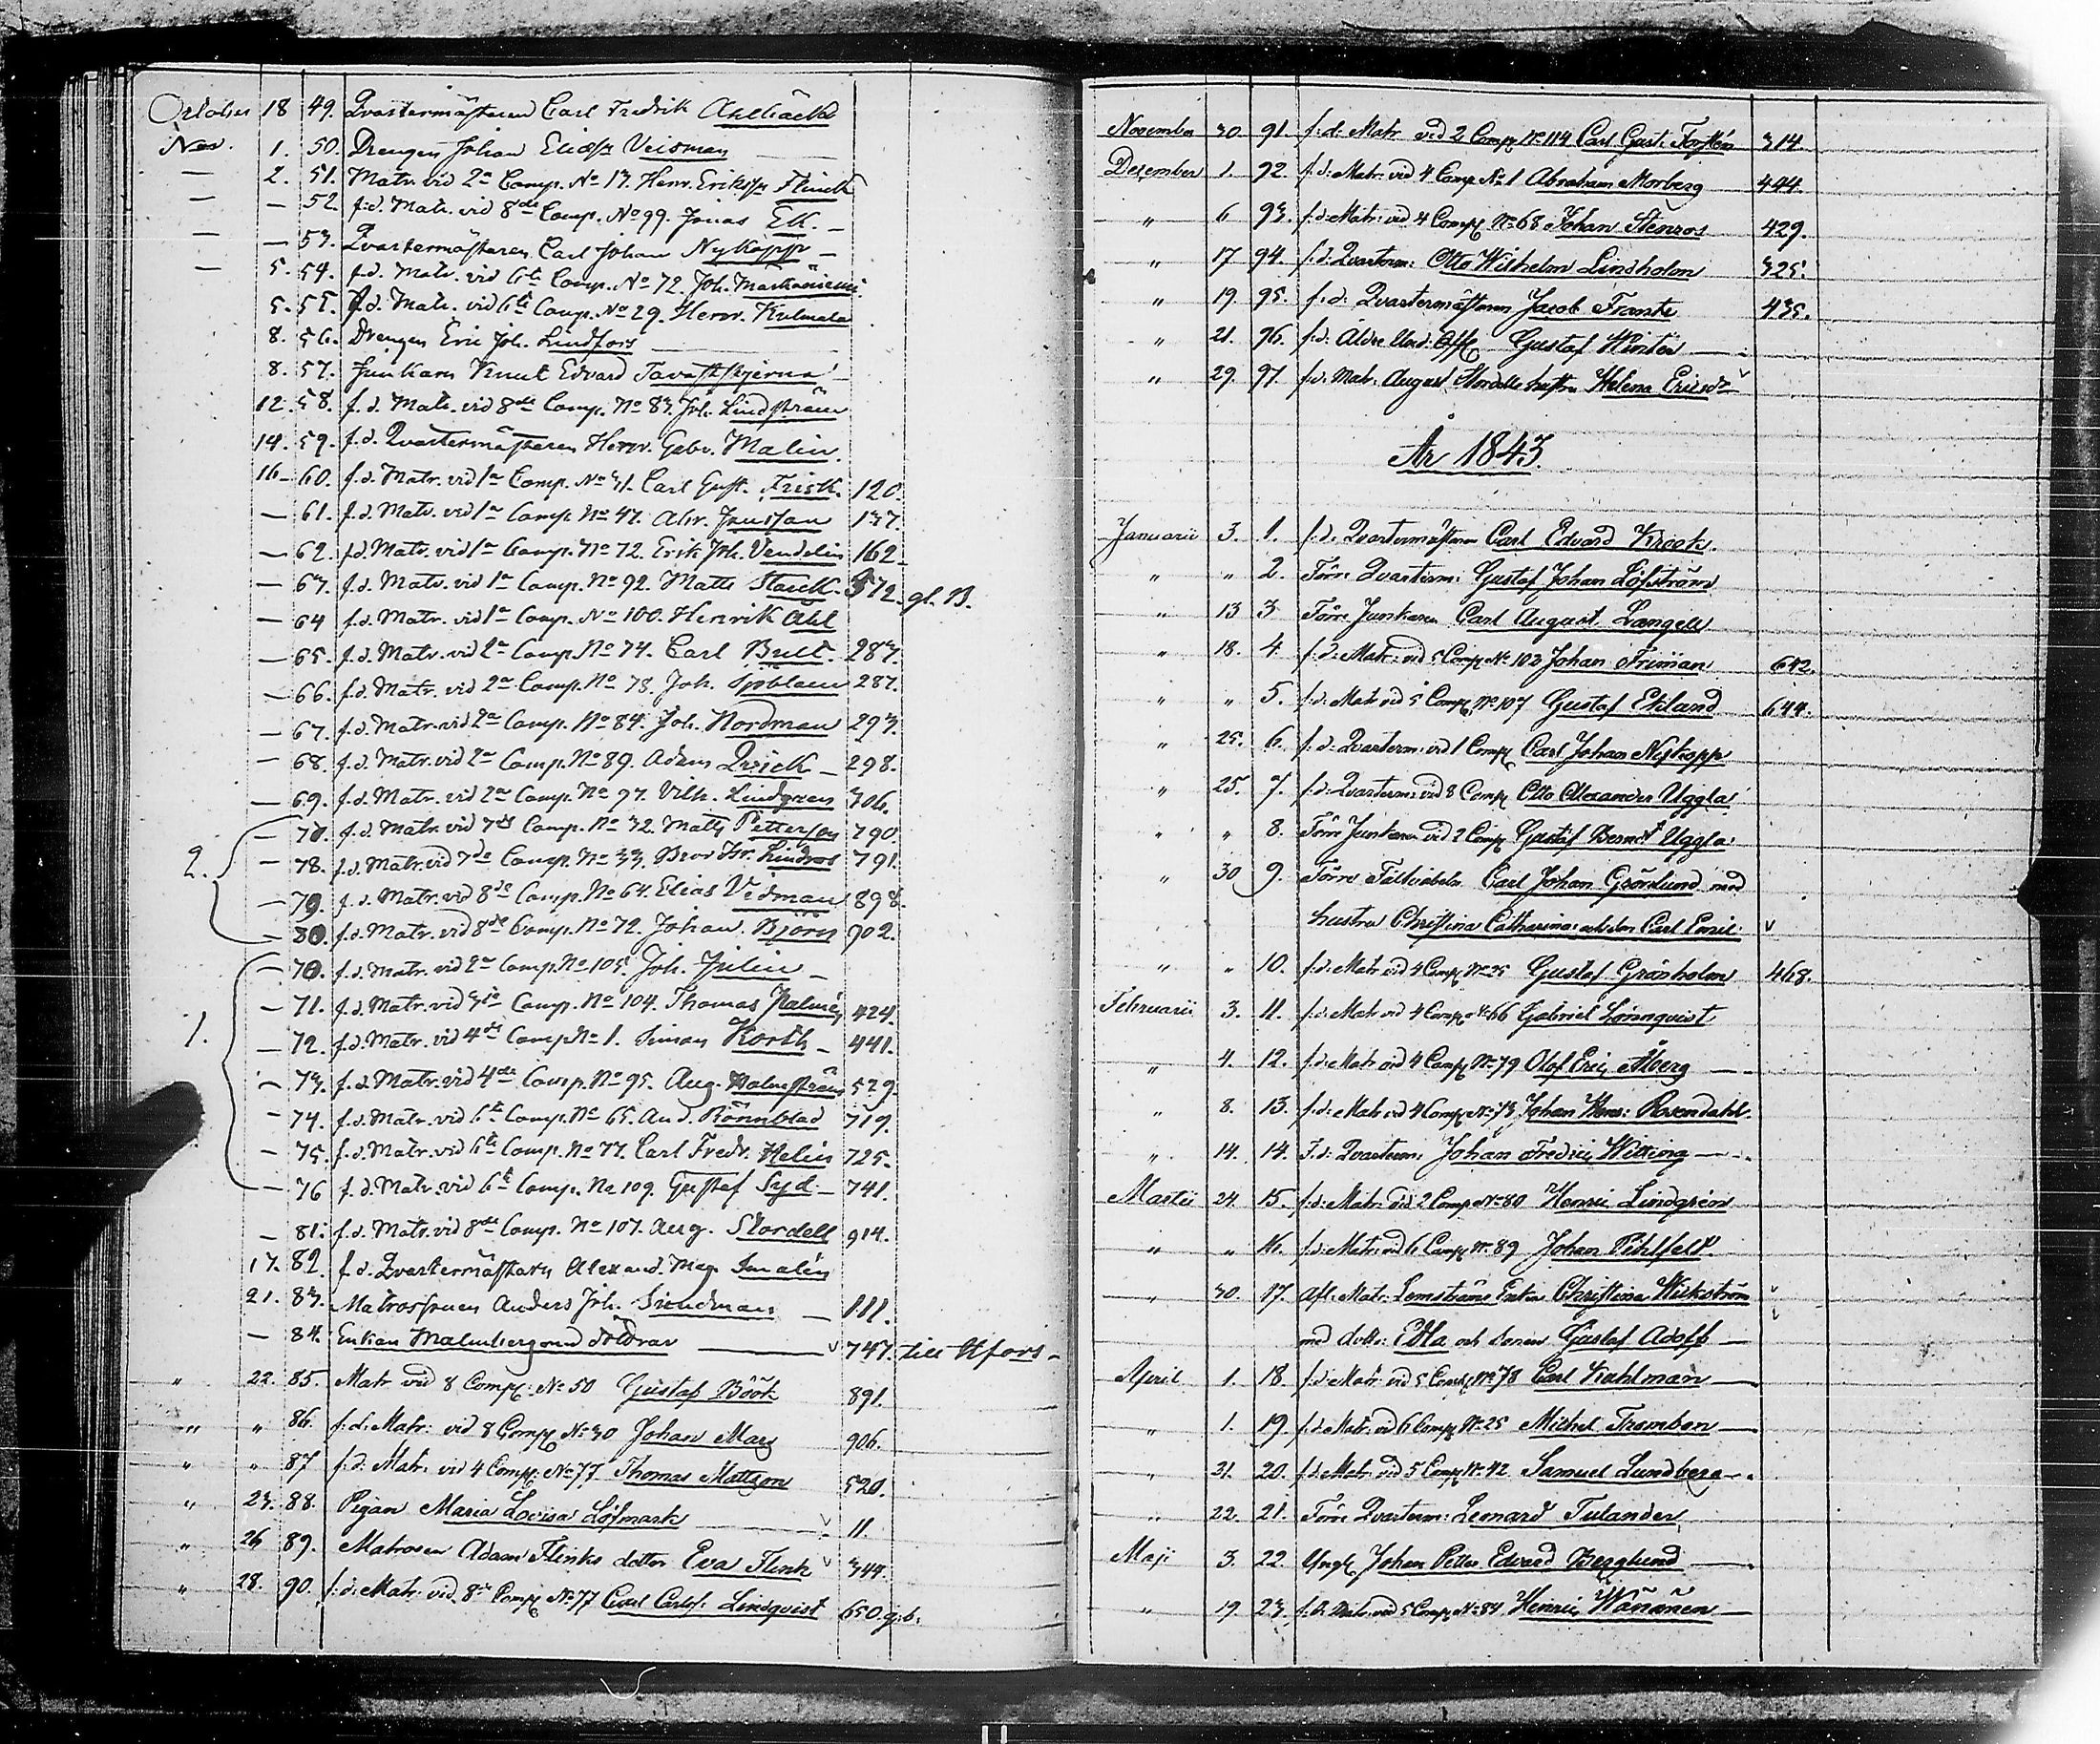 October 18 49. Qvartermästaren Carl Fredrik Ahlbäck
Nov. 1. 50. Drengen Johan Eliæss. Veisman
— 2. 51. Matr. vid 2a Comp. No 13. Henr. Erikss. Flinck
— — 52. f.d. Matr. vid 8de Comp. No 99. Jonas Ek. —
— — 53. Qvartermästaren Carl Johan Nykopp —
— 5. 54. f.d. Matr. vid 6te Comp. No 72. Joh. Markaniemi
5. 55. f.d. Matr. vid 6te Comp. No 29. Henr. Kulmala
8. 56. Drengen Eric Joh. Lindfors
8. 57. Junkarn Knut Edvard Tavaststjerna —
12. 58. f.d. Matr. vid 8de Comp. No 83. Joh. Lindström
14. 59. f.d. Qvartermästaren Henr. Gabr. Malin.
16 — 60. f.d. Matr. vid 1a Comp. No 31. Carl Gust. Frisk. 120.
— 61. f.d. Matr. vid 1a Comp. No 47. Abr. Jansson 137.
— 62. f.d. Matr. vid 1a Comp. No 72. Erik Joh. Vendelin 162.
— 63. f.d. Matr. vid 1a Comp. No 92. Matts Starck. 572. gl. B.
— 64 f.d. Matr. vid 1a Comp. No 100. Henrik Ahl
— 65. f.d. Matr. vid 2a Comp. No 74. Carl Bult. 283.
— 66. f.d. Matr. vid 2a Comp. No 78. Joh. Sjöblom 287.
— 67. f.d. Matr. vid 2a Comp. No 84. Joh. Nordman 293.
— 68. f.d. Matr. vid 2a Comp. No 89. Adam Qvick — 298.
— 69. f.d. Matr. vid 2a Comp. No 97. Vilh. Lindgren 306.
2. — 77. f.d. Matr. vid 7de Comp. No 32. Matts Petterson 790.
— 78. f.d. Matr. vid 7de Comp. No 33. Isr. Lindros 791.
— 79. f.d. Matr. vid 8de Comp. No 64. Elias Vidman 898.
— 80. f.d. Matr. vid 8de Comp. No 72. Johan. Björn 902.
1. — 70. f.d. Matr. vid 2a Comp. No 105. Joh. Julin —
— 71. f.d. Matr. vid 3je Comp. No 104. Thomas Palmén 424.
— 72. f.d. Matr. vid 4de Comp. No 1. Simon Korth — 441.
— 73. f.d. Matr. vid 4de Comp. No 95. Aug. Holmström 529.
— 74. f.d. Matr. vid 6te Comp. No 65. And. Rönnblad 719.
— 75. f.d. Matr. vid 6te Comp. No 77. Carl Fredr. Helin 725.
— 76 f.d. Matr. vid 6te Comp. No 109. Gustaf Syd — 741.
— 81. f.d. Matr. vid 8de Comp. No 107. Aug. Stordell 914.
17. 82. f.d. Qvartermästarn Alexand. Mag. Smalén
21. 83. Matrossonen Anders Joh. Sundman — 111.
— 84. Enkan Malmberg med döttrar — v 747. till Hfors —
" 22. 85. Matr vid 8 Comp: No 50 Gustaf Böök 891.
" " 86. f.d. Matr: vid 8 Comp No 30 Johan Mars 906.
" " 87 f.d. Matr. vid 4 Comp: No 77 Thomas Mattson 520.
" 23. 88. Pigan Maria Lovisa Löfmark v 11.
" 26 89. Matrosen Adam Flinks dotter Eva Flink v 344.
" 28. 90. f.d. Matr. vid 8de Comp No 77 Carl Carls: Lindqvist 650. g.b.
November 30. 91. f.d. Matr vid 2 Comp No 114 Carl Gust. Forstén 314.
December 1. 92. f.d. Matr. vid 4 Comp No 1 Abraham Morberg 444.
" 6 93. f.d. Matr: vid 4 Comp No 68 Johan Stenros 429.
" 17 94. f.d. Qvarterm: Otto Wilhelm Lindholm 325.
" 19. 95. f.d. Qvartermästaren Jacob Frante 435.
" 21. 96. f.d. Äldre Und: Off. Gustaf Winter —
" 29. 97. f.d. Matr. August Stordells hustru Helena Ericsdr v
År 1843.
Januarii 3. 1. f.d. Qvartermästaren Carl Edvard Krook.
" " 2. Förre Qvarterm: Gustaf Johan Löfström
" 13 3 Förre Junkaren Carl August Langell
" 18. 4 f.d. Matr: vid 5 Comp No 102 Johan Friman 642.
" " 5. f.d. Matr vid 5 Comp No 107 Gustaf Eklund 644.
" 25. 6. f.d. Qvarterm: vid 1 Comp Carl Johan Nykopp
" 25. 7. f.d. Qvarterm: vid 8 Comp Otto Alexander Uggla
" " 8. Förre Junkaren vid 2 Comp Gustaf Berndt Uggla
" 30 9. Förre Fältväbeln Carl Johan Grönlund med
hustru Christina Catharina och son Carl Emil v
" " 10. f.d. Matr vid 4 Comp No 25 Gustaf Granholm 468.
Februarii 3. 11. f.d. Matr vid 4 Comp No 66 Gabriel Lönnqvist
" 4. 12. f.d. Matr vid 4 Comp No 79 Olof Eric Åberg —
" 8. 13. f.d. Matr vid 4 Comp No 73 Johan Henr: Rosendahl.
" 14. 14. F.d. Qvarterm: Johan Fredric Witting —
Martii 24. 15. f.d. Matr: vid 2 Comp No 80 Henric Lindgrén
" " 16. f.d. Matr: vid 6 Comp No 89 Johan Pihlfelt.
" 30. 17. Afl. Matr: Lemströms Enka Christina Wickström v
med dottr: Edla och sonen Gustaf Adolf — v
April 1. 18. f.d. Matr vid 5 Comp No 78 Carl Kahlman —
" 1. 19. f.d. Matr. vid 6 Comp No 25 Michel Tromben —
" 21. 20. f.d. Matr vid 5 Comp No 42 Samuel Lundberg —
" 22. 21. Förre Qvarterm: Leonard Tulander
Maji 3. 22. Yngl. Johan Petter Edvard Berglund —
" 19. 23. f.d. Matr. vid 5 Comp No 84 Henric Wänänen —